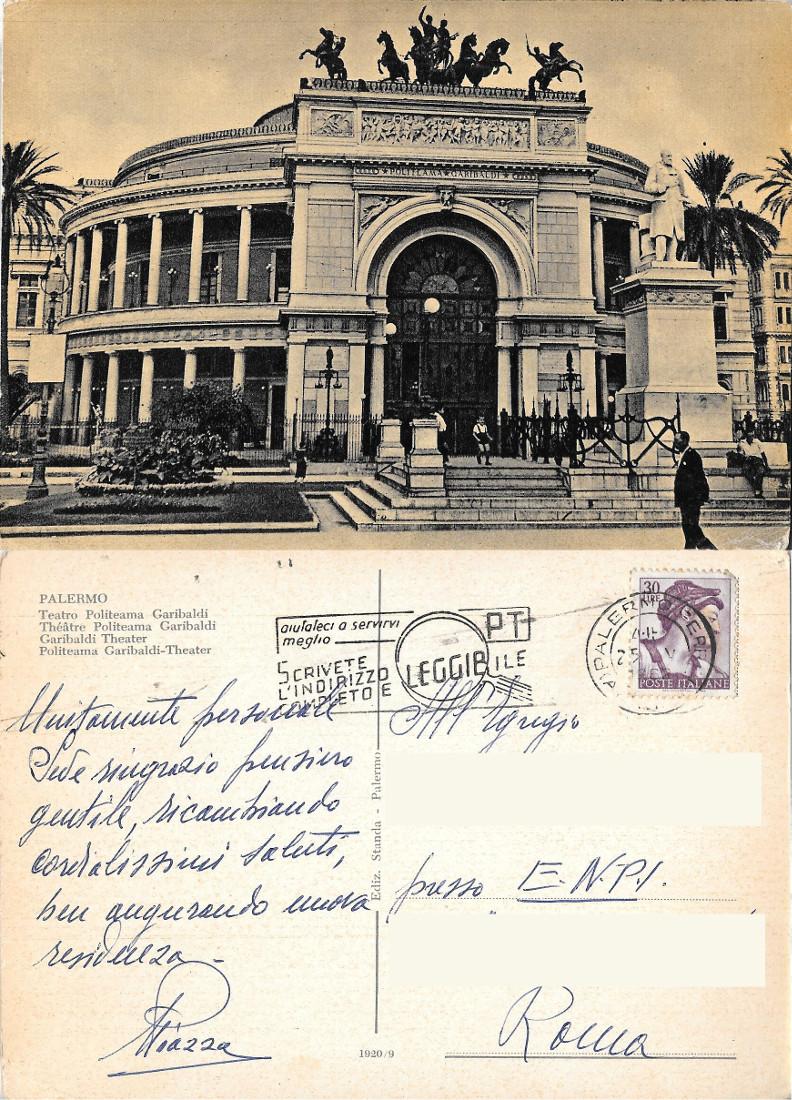 POLITEAMA GARIBALDI
PALERMO
Teatro Politeama Garibaldi
Théâtre Politeama Garibaldi
Garibaldi Theater
Politeama Garibaldi-Theater
aiutateci a servirvi
meglio
PT
SCRIVETE
L'INDIRIZZO
COMPLETO E LEGGIBILE
30
LIRE
POSTE ITALIANE
Unitamente personale
Sede ringrazio pensiero
gentile, ricambiando
cordialissimi saluti,
ben augurando nuova
residenza -
Piazza
Ediz. Standa - Palermo
1920/9
All'Egregio
presso E.N.P.I.
"
Roma